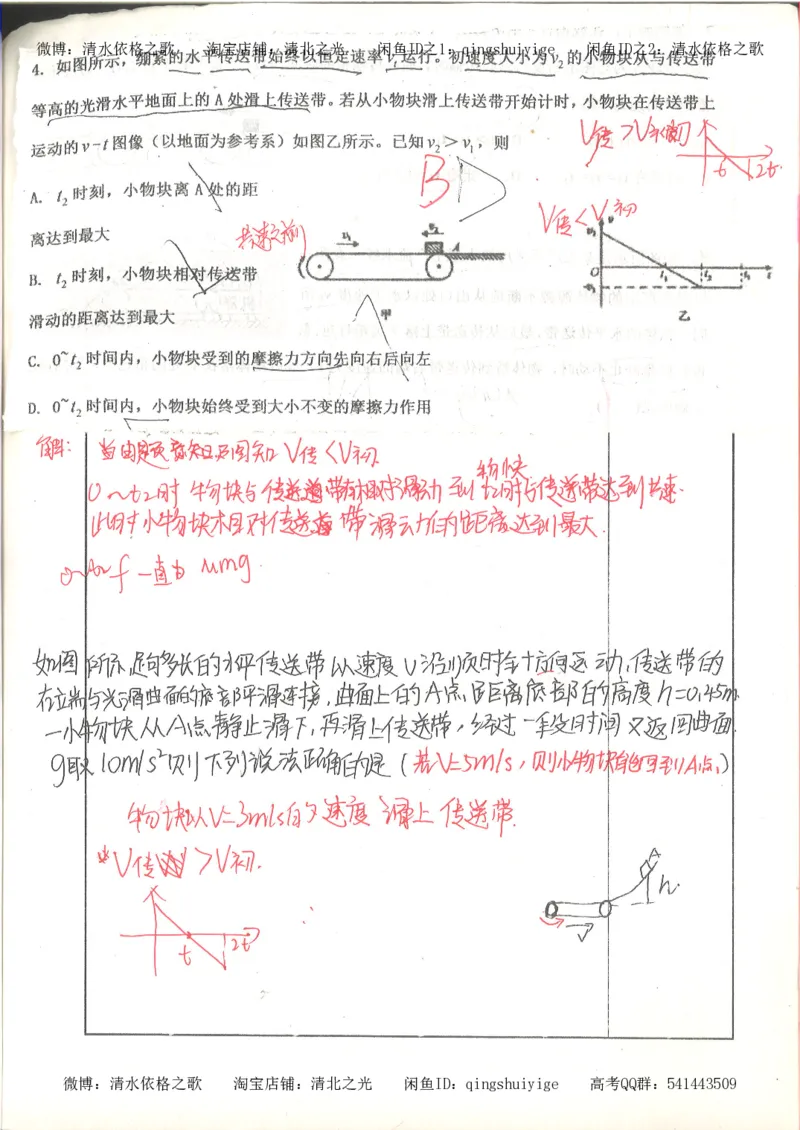 微博：清水依格之歌 淘宝店铺：清北之光 闲鱼ID之1：qingshuiyige 闲鱼ID之2：清水依格之歌
4. 如图所示，绷紧的水平传送带始终以恒定速率v₁运行。初速度大小为v₂的小物块从与传送带
等高的光滑水平地面上的A处滑上传送带。若从小物块滑上传送带开始计时，小物块在传送带上
运动的v-t图像（以地面为参考系）如图乙所示。已知v₂＞v₁，则
V传＞V初
t 2t
B
A. t₂时刻，小物块离A处的距
离达到最大
V传＜V初
共速之前
v₁ v₂ A
v₂ v O t₁ t₂ t₃ t -v₁
B. t₂时刻，小物块相对传送带
滑动的距离达到最大
甲 乙
C. 0~t₂时间内，小物块受到的摩擦力方向先向右后向左
D. 0~t₂时间内，小物块始终受到大小不变的摩擦力作用
解: 当由题意知及图知 V传＜V初.
物块
0~t2时 物块与传送带有相对滑动 到t2时与传送带达到共速.
此时小物块相对传送带滑动的距离达到最大.
0~t2 f一直为 μmg.
如图所示,足够多长的水平传送带以速度v沿顺时针方向运动,传送带的
右端与光滑曲面的底部平滑连接,曲面上的A点距离底部的高度h=0.45m
一小物块从A点静止滑下,再滑上传送带,经过一段时间又返回曲面.
g取10m/s²则下列说法正确的是（若V=5m/s,则小物块能回到A点.）
物块以V=3m/s的速度滑上传送带.
V传＞V初.
A
h.
v
t 2t
微博：清水依格之歌 淘宝店铺：清北之光 闲鱼ID：qingshuiyige 高考QQ群：541443509